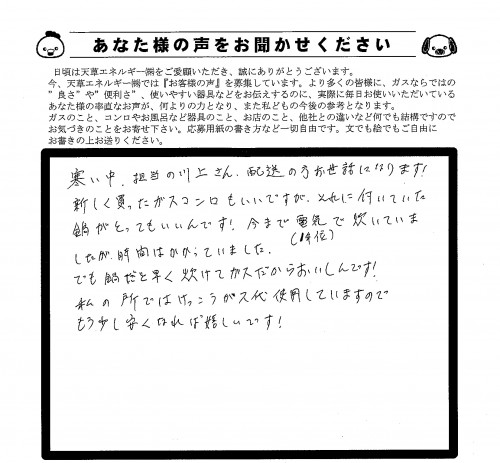 あなた様の声をお聞かせください
日頃は天草エネルギー㈱をご愛顧いただき、誠にありがとうございます。
今、天草エネルギー㈱では『お客様の声』を募集しています。より多くの皆様に、ガスならではの
"良さ"や"便利さ"、使いやすい器具などをお伝えするのに、実際に毎日お使いいただいている
あなた様の率直なお声が、何よりの力となり、また私どもの今後の参考となります。
ガスのこと、コンロやお風呂など器具のこと、お店のこと、他社との違いなど何でも結構ですので
お気づきのことをお寄せ下さい。応募用紙の書き方など一切自由です。文でも絵でもご自由に
お書きの上お送りください。
寒い中、担当の川上さん、配送の方お世話になります!
新しく買ったガスコンロもいいですが、それに付いていた
鍋がとってもいいんです!今まで電気で炊いていま
(1年位)
したが、時間はかかっていました。
でも鍋だと早く炊けてガスだからおいしんです!
私の所ではけっこうガス代使用していますので
もう少し安くなれば嬉しいです!